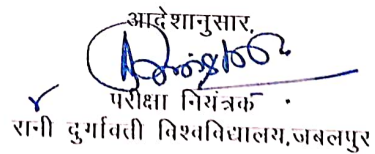 आदेशानुसार,
परीक्षा नियंत्रक
रानी दुर्गावती विश्वविद्यालय,जबलपुर